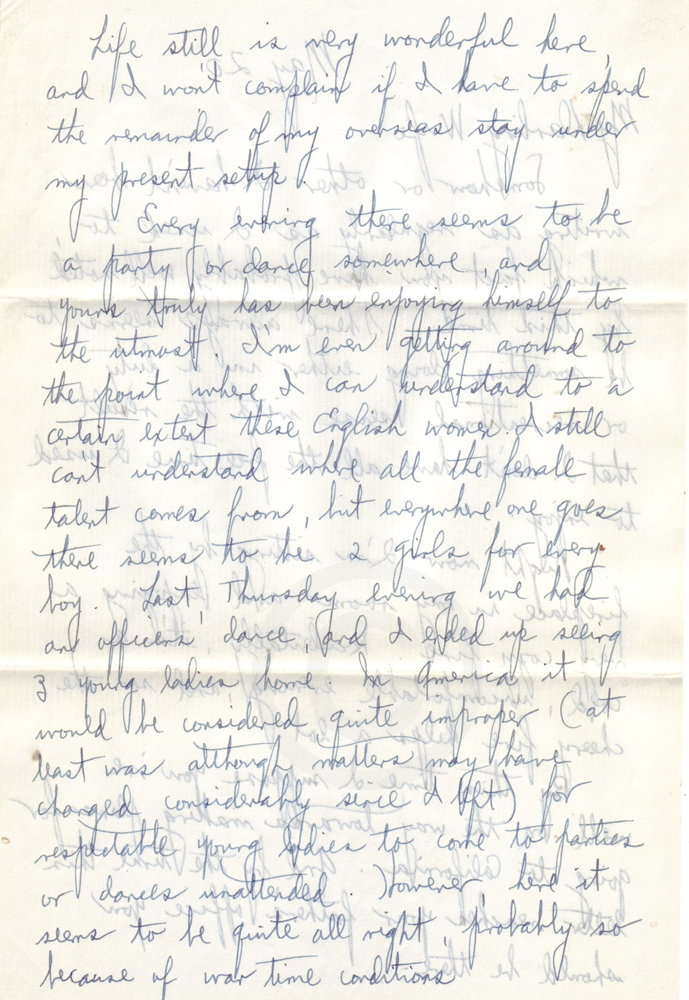 Life still is very wonderful here,
and I won't complain if I have to spend
the remainder of my overseas stay under
my present setup.
Every evening there seems to be
a party or dance somewhere, and
yours truly has been enjoying himself to
the utmost. I'm even getting around to
the point where I can understand to a
certain extent these English women. I still
cant understand where all the female
talent comes from, but everywhere one goes
there seems to be 2 girls for every
boy. Last Thursday evening we had
an officers dance, and I ended up seeing
3 young ladies home. In America it
would be considered quite improper (at
least was although matters may have
changed considerably since I left) for
respectable young ladies to come to parties
or dances unattended. However, here it
seems to be quite all right, probably so
because of war time conditions